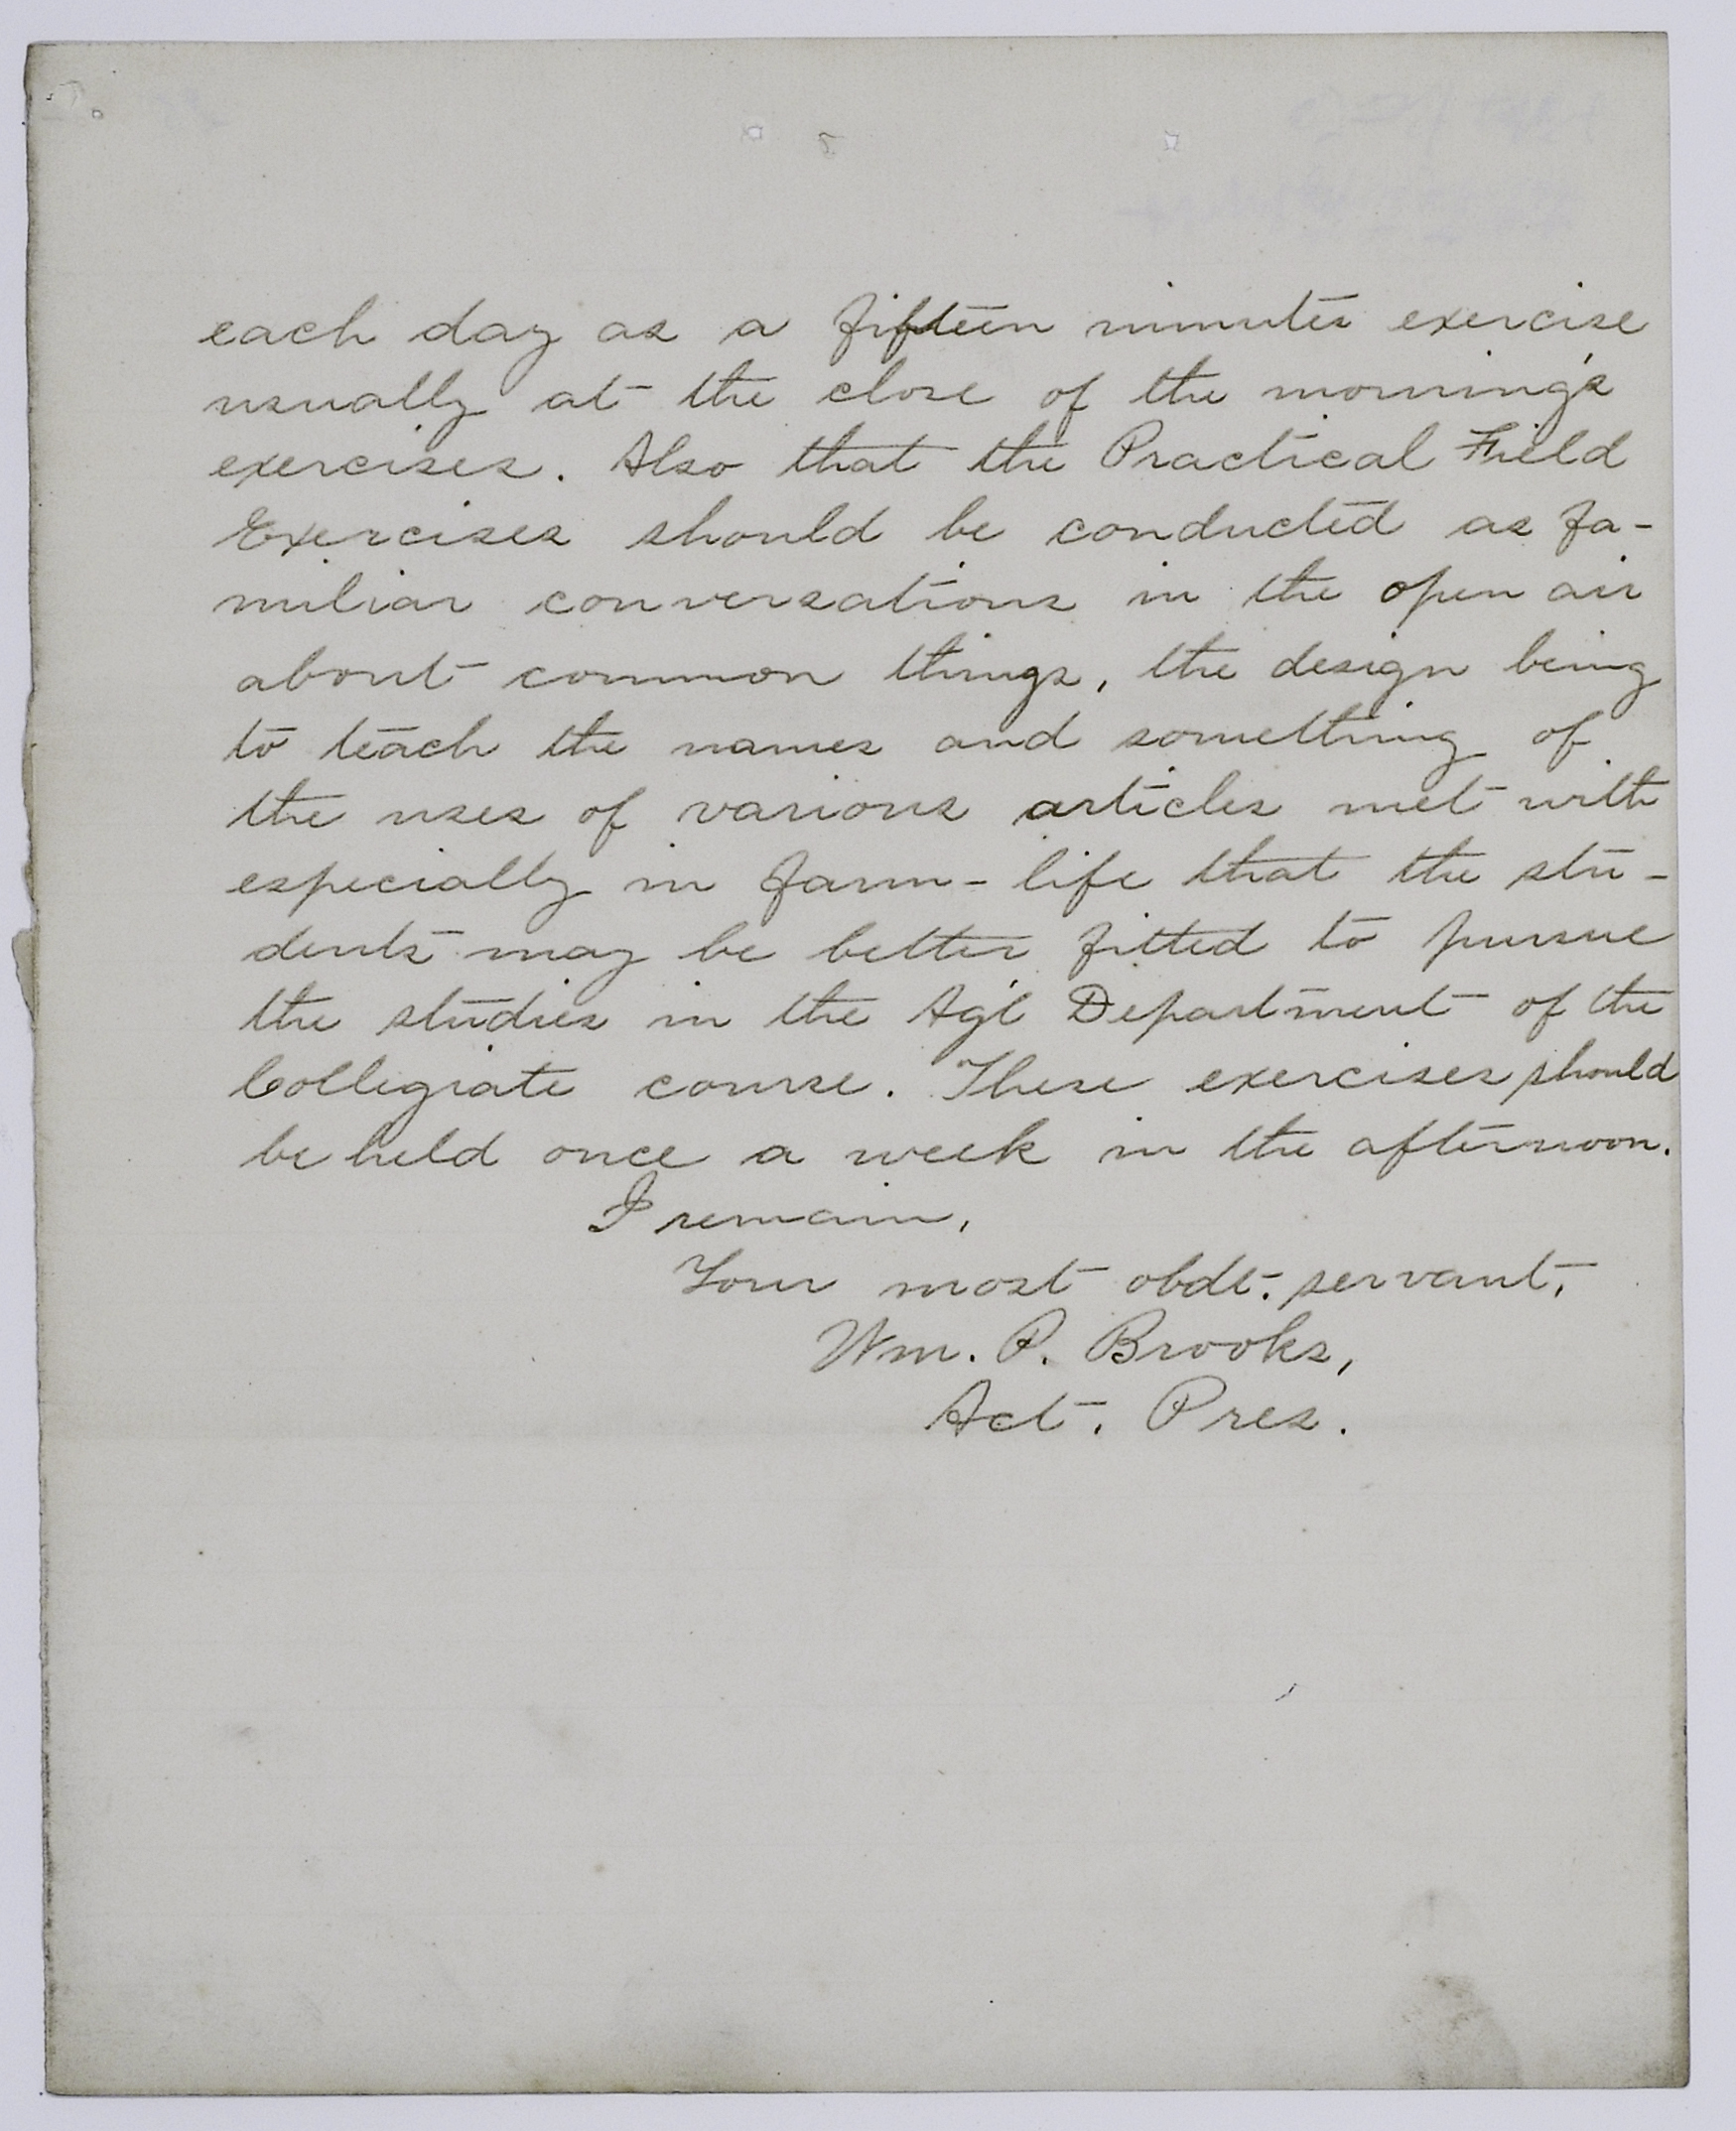 each day as a fifteen minutes exercise
usually at the close of the morning's
exercises. Also that the Practical Field
Exercises should be conducted as fa-
miliar conversations in the open air
about common things, the design being
to teach the names and something of
the uses of various articles met with
especially in farm-life that the stu-
dents may be better fitted to pursue
the studies in the Ag'l Department of the
Collegiate course. These exercises should
be held once a week in the afternoon.
I remain,
Your most obdt. servant,
Wm. P. Brooks,
Act. Pres.